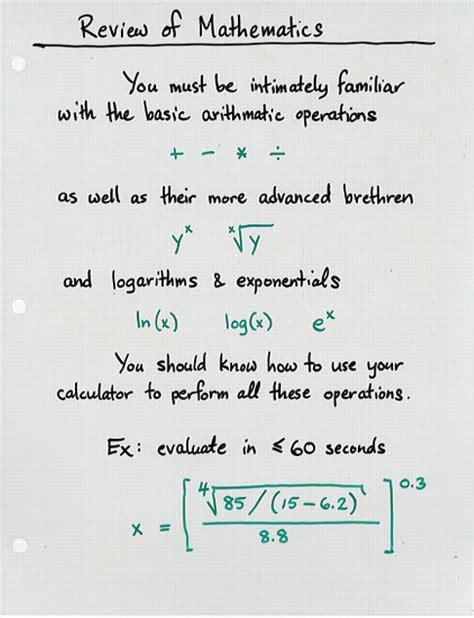 Review of Mathematics
You must be intimately familiar
with the basic arithmatic operations
+ - * ÷
as well as their more advanced brethren
yˣ ˣ√y
and logarithms & exponentials
ln(x) log(x) eˣ
You should know how to use your
calculator to perform all these operations.
Ex: evaluate in ≤ 60 seconds
x = [ ⁴√85/(15-6.2) / 8.8 ]^0.3